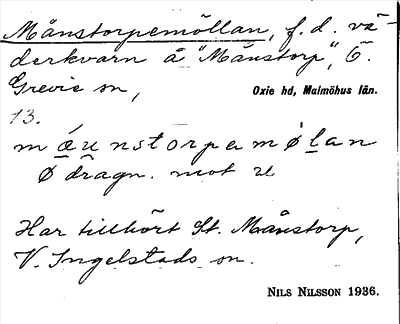 Månstorpemöllan, f. d. vä-
derkvarn å "Månstorp", Ö.
Grevie sn,
Oxie hd, Malmöhus län.
13.
mǽunstorpemøḷan
ø dragn. mot æ
Har tillhört St. Månstorp,
V. Ingelstads sn.
NILS NILSSON 1936.